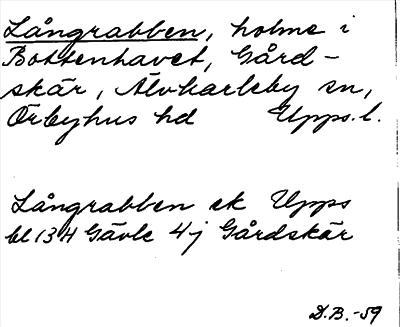 Långrabben, holme i
Bottenhavet, Gård-
skär, Älvkarleby sn,
Örbyhus hd Upps. l.
Långrabben ek Upps
bl 13H Gävle 4j Gårdskär
D.B. -59